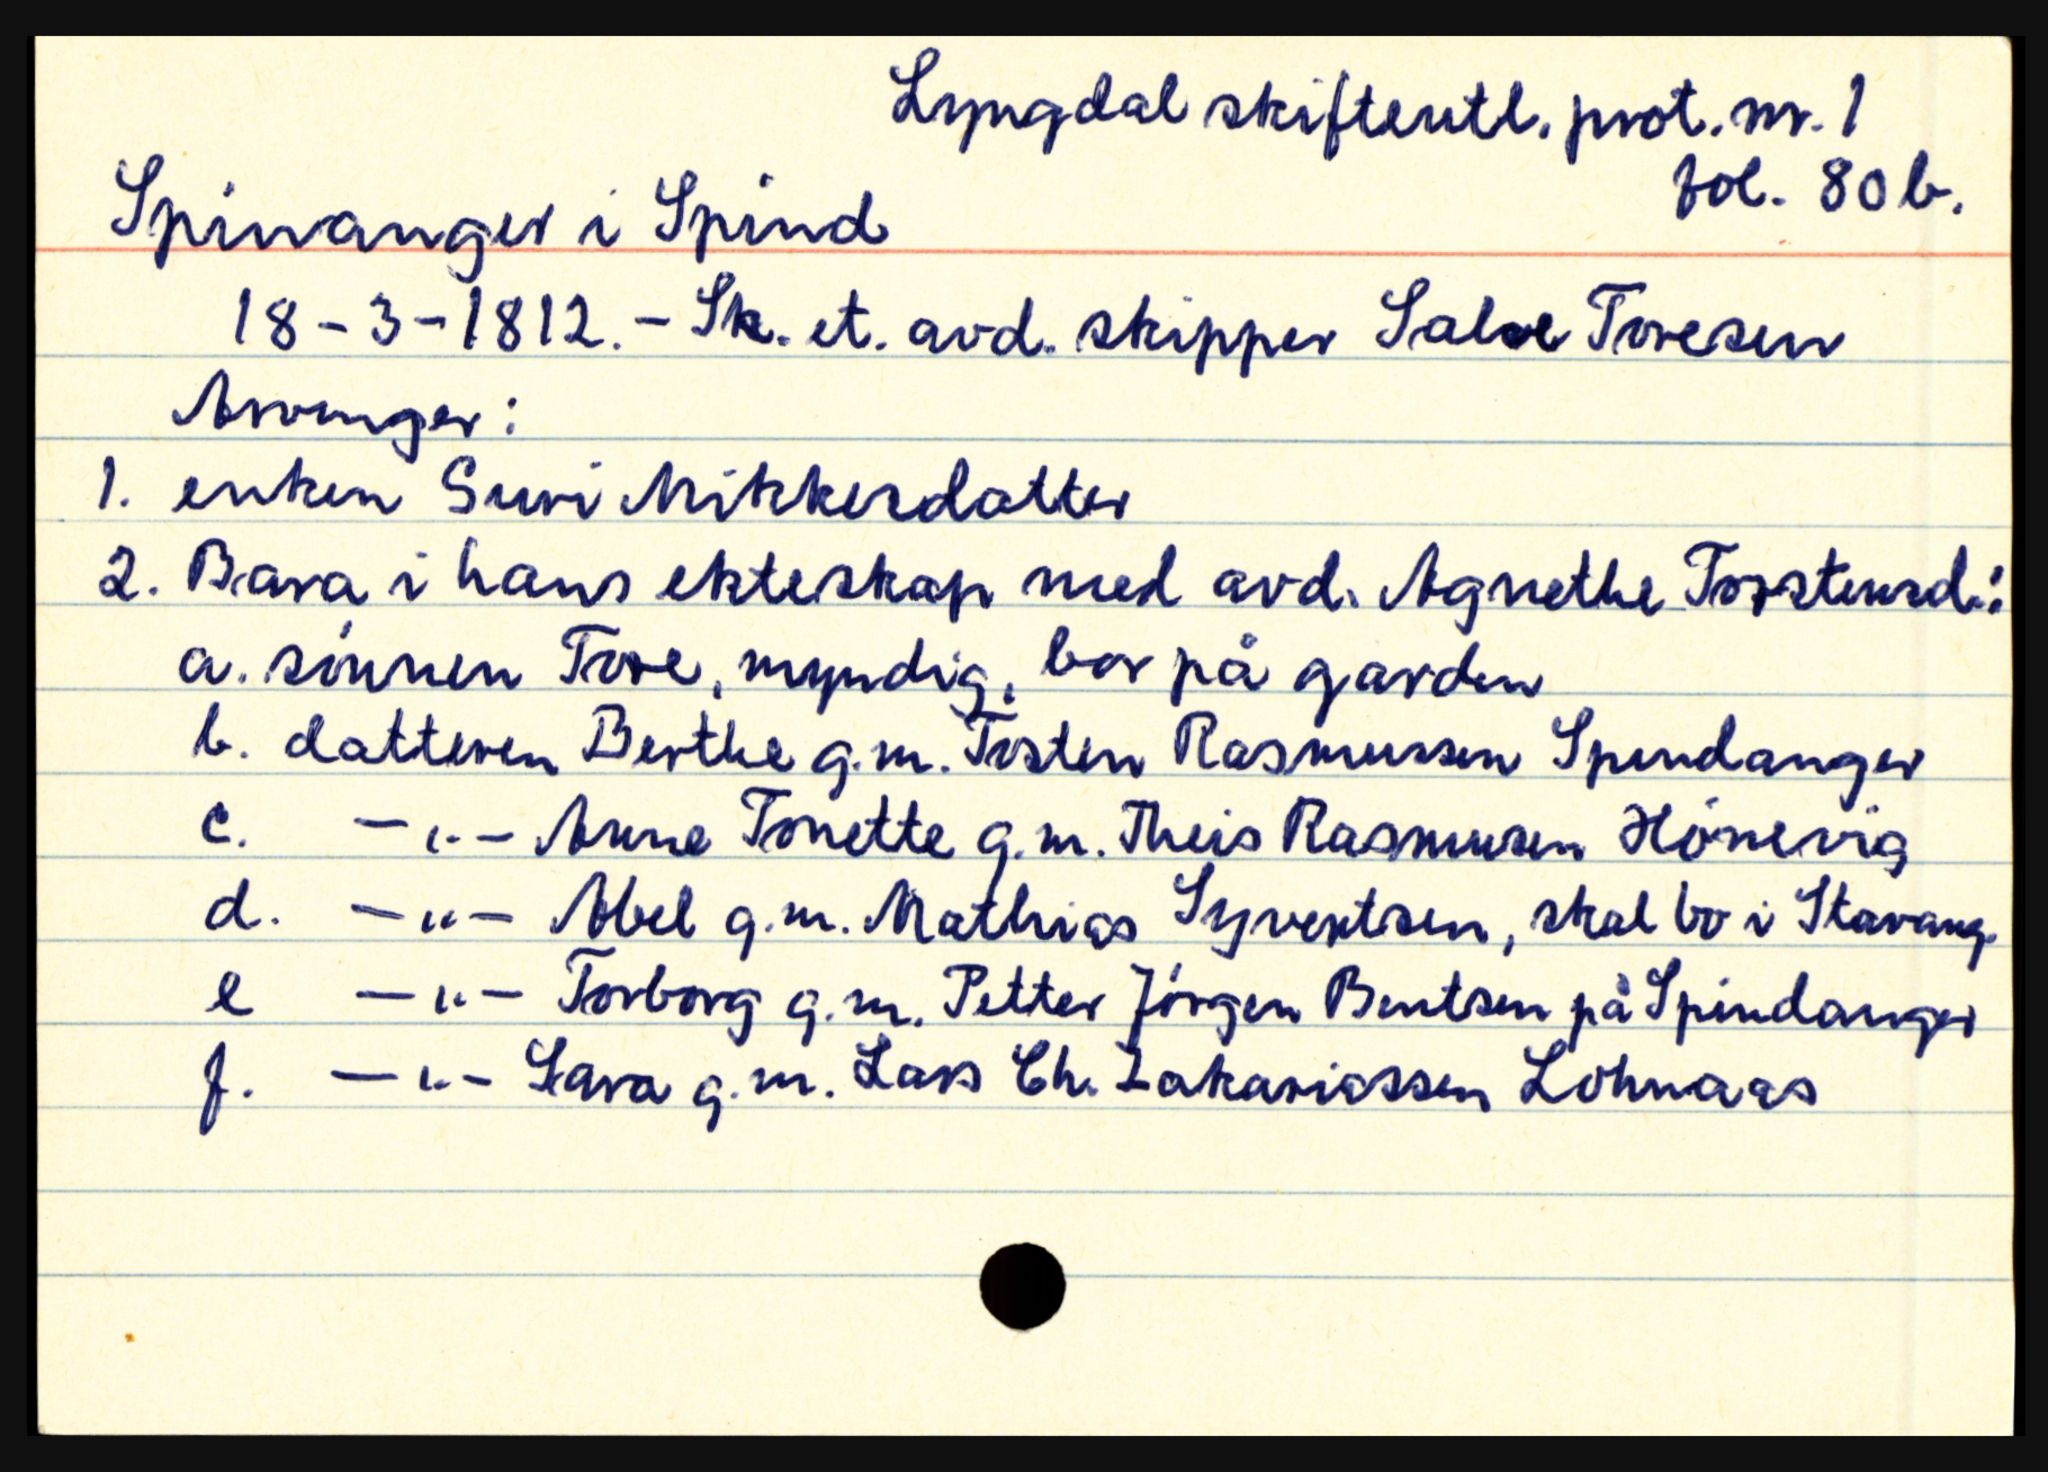 Lyngdal skifteutl. prot. nr. 1
fol. 80 b.
Spinanger i Spind
18-3-1812. - Sk. et. avd. skipper Salve Toresen
Arvinger:
1. enken Suri Mikkersdatter
2. Barna i hans ekteskap med avd. Agnethe Torstensd.:
a. sönnen Tore, myndig, bor på garden
b. datteren Berthe g.m. Tosten Rasmussen Spindanger
c. -"- Anne Tonette g.m. Theis Rasmussen Hönevig
d. -"- Abel g.m. Mathias Syvertsen, skal bo i Stavang.
e -"- Torborg g.m. Petter Jörgen Bentsen på Spindanger
f. -"- Sara g.m. Lars Ch. Zakariassen Lohnaas